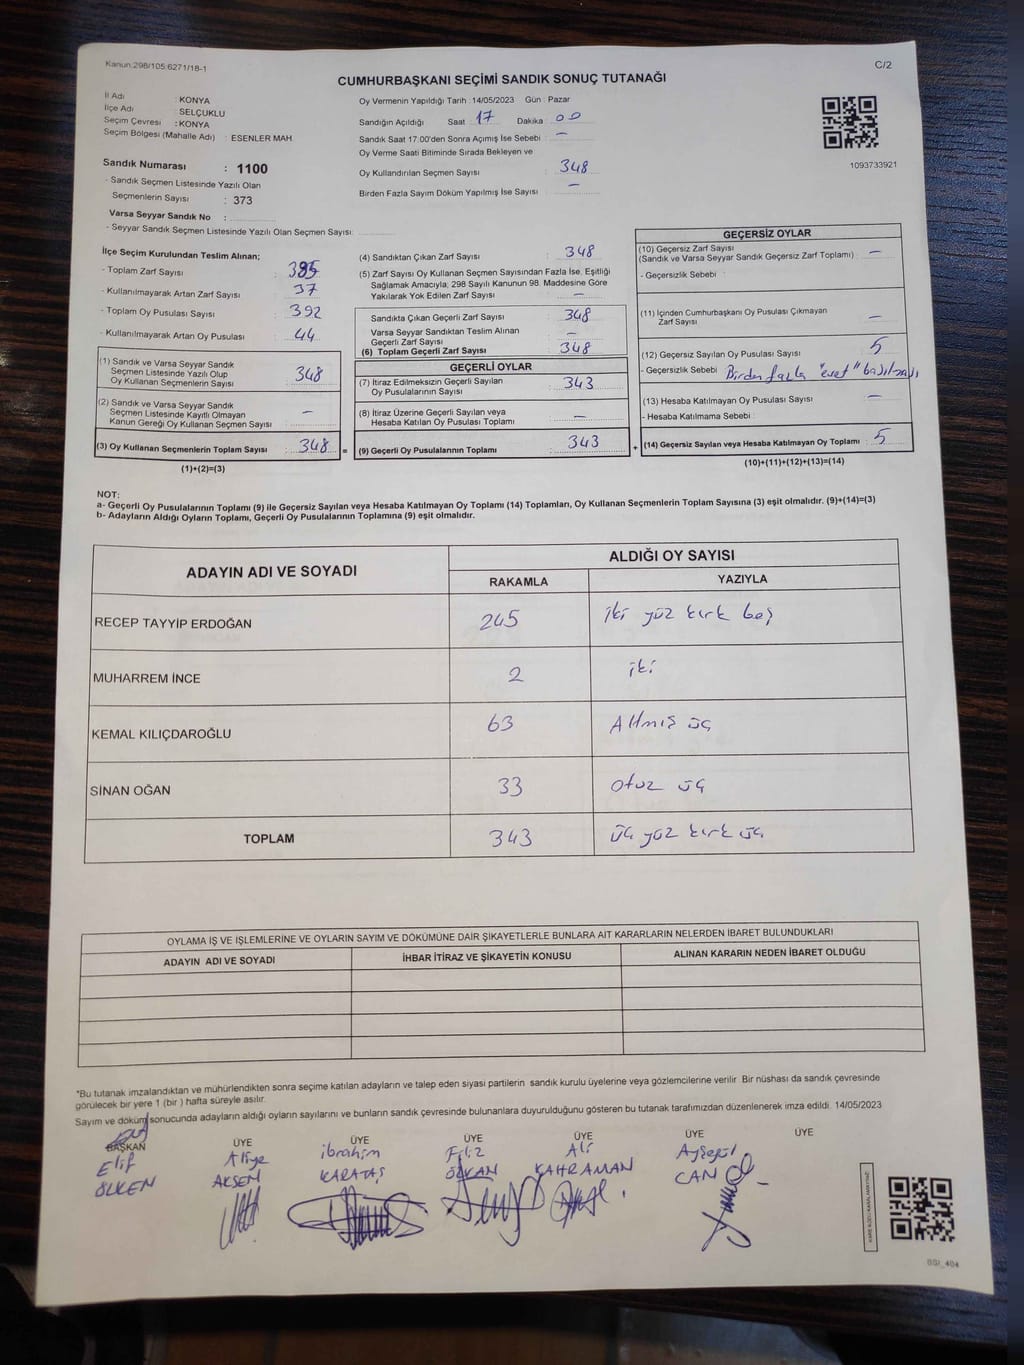 Kanun:298/105:6271/18-1
C/2
CUMHURBAŞKANI SEÇİMİ SANDIK SONUÇ TUTANAĞI
İl Adı : KONYA
İlçe Adı : SELÇUKLU
Seçim Çevresi : KONYA
Seçim Bölgesi (Mahalle Adı) : ESENLER MAH.
Sandık Numarası : 1100
- Sandık Seçmen Listesinde Yazılı Olan
Seçmenlerin Sayısı : 373
Varsa Seyyar Sandık No :
- Seyyar Sandık Seçmen Listesinde Yazılı Olan Seçmen Sayısı:
Oy Vermenin Yapıldığı Tarih :14/05/2023 Gün : Pazar
Sandığın Açıldığı Saat 17 Dakika : 00
Sandık Saat 17:00'den Sonra Açımış İse Sebebi : —
Oy Verme Saati Bitiminde Sırada Bekleyen ve
Oy Kullandırılan Seçmen Sayısı : 348
Birden Fazla Sayım Döküm Yapılmış İse Sayısı : —
1093733921
İlçe Seçim Kurulundan Teslim Alınan;
- Toplam Zarf Sayısı : 385
- Kullanılmayarak Artan Zarf Sayısı : 37
- Toplam Oy Pusulası Sayısı : 392
- Kullanılmayarak Artan Oy Pusulası : 44
(1) Sandık ve Varsa Seyyar Sandık
Seçmen Listesinde Yazılı Olup
Oy Kullanan Seçmenlerin Sayısı : 348
(2) Sandık ve Varsa Seyyar Sandık
Seçmen Listesinde Kayıtlı Olmayan
Kanun Gereği Oy Kullanan Seçmen Sayısı : —
(3) Oy Kullanan Seçmenlerin Toplam Sayısı : 348 =
(1)+(2)=(3)
(4) Sandıktan Çıkan Zarf Sayısı : 348
(5) Zarf Sayısı Oy Kullanan Seçmen Sayısından Fazla İse, Eşitliği
Sağlamak Amacıyla, 298 Sayılı Kanunun 98. Maddesine Göre
Yakılarak Yok Edilen Zarf Sayısı : —
Sandıkta Çıkan Geçerli Zarf Sayısı : 348
Varsa Seyyar Sandıktan Teslim Alınan
Geçerli Zarf Sayısı : —
(6) Toplam Geçerli Zarf Sayısı : 348
GEÇERLİ OYLAR
(7) İtiraz Edilmeksizin Geçerli Sayılan
Oy Pusulalarının Sayısı : 343
(8) İtiraz Üzerine Geçerli Sayılan veya
Hesaba Katılan Oy Pusulası Toplamı : —
(9) Geçerli Oy Pusulalarının Toplamı : 343 +
GEÇERSİZ OYLAR
(10) Geçersiz Zarf Sayısı
(Sandık ve Varsa Seyyar Sandık Geçersiz Zarf Toplamı) : —
- Geçersizlik Sebebi :
(11) İçinden Cumhurbaşkanı Oy Pusulası Çıkmayan
Zarf Sayısı : —
(12) Geçersiz Sayılan Oy Pusulası Sayısı : 5
- Geçersizlik Sebebi : Birden fazla "evet" basılması
(13) Hesaba Katılmayan Oy Pusulası Sayısı : —
- Hesaba Katılmama Sebebi :
(14) Geçersiz Sayılan veya Hesaba Katılmayan Oy Toplamı : 5
(10)+(11)+(12)+(13)=(14)
NOT:
a- Geçerli Oy Pusulalarının Toplamı (9) ile Geçersiz Sayılan veya Hesaba Katılmayan Oy Toplamı (14) Toplamları, Oy Kullanan Seçmenlerin Toplam Sayısına (3) eşit olmalıdır. (9)+(14)=(3)
b- Adayların Aldığı Oyların Toplamı, Geçerli Oy Pusulalarının Toplamına (9) eşit olmalıdır.
ADAYIN ADI VE SOYADI
ALDIĞI OY SAYISI
RAKAMLA YAZIYLA
RECEP TAYYİP ERDOĞAN 245 iki yüz kırk beş
MUHARREM İNCE 2 iki
KEMAL KILIÇDAROĞLU 63 Altmış üç
SİNAN OĞAN 33 otuz üç
TOPLAM 343 üç yüz kırk üç
OYLAMA İŞ VE İŞLEMLERİNE VE OYLARIN SAYIM VE DÖKÜMÜNE DAİR ŞİKAYETLERLE BUNLARA AİT KARARLARIN NELERDEN İBARET BULUNDUKLARI
ADAYIN ADI VE SOYADI İHBAR İTİRAZ VE ŞİKAYETİN KONUSU ALINAN KARARIN NEDEN İBARET OLDUĞU
*Bu tutanak imzalandıktan ve mühürlendikten sonra seçime katılan adayların ve talep eden siyasi partilerin sandık kurulu üyelerine veya gözlemcilerine verilir. Bir nüshası da sandık çevresinde
görülecek bir yere 1 (bir ) hafta süreyle asılır.
Sayım ve döküm sonucunda adayların aldığı oyların sayılarını ve bunların sandık çevresinde bulunanlara duyurulduğunu gösteren bu tutanak tarafımızdan düzenlenerek imza edildi. 14/05/2023
BAŞKAN ÜYE ÜYE ÜYE ÜYE ÜYE ÜYE
Elif Aliye ibrahim Filiz Ali Ayşegül
ÖLKEN AKSEN KARATAŞ ÖZKAN KAHRAMAN CAN
BSI_404